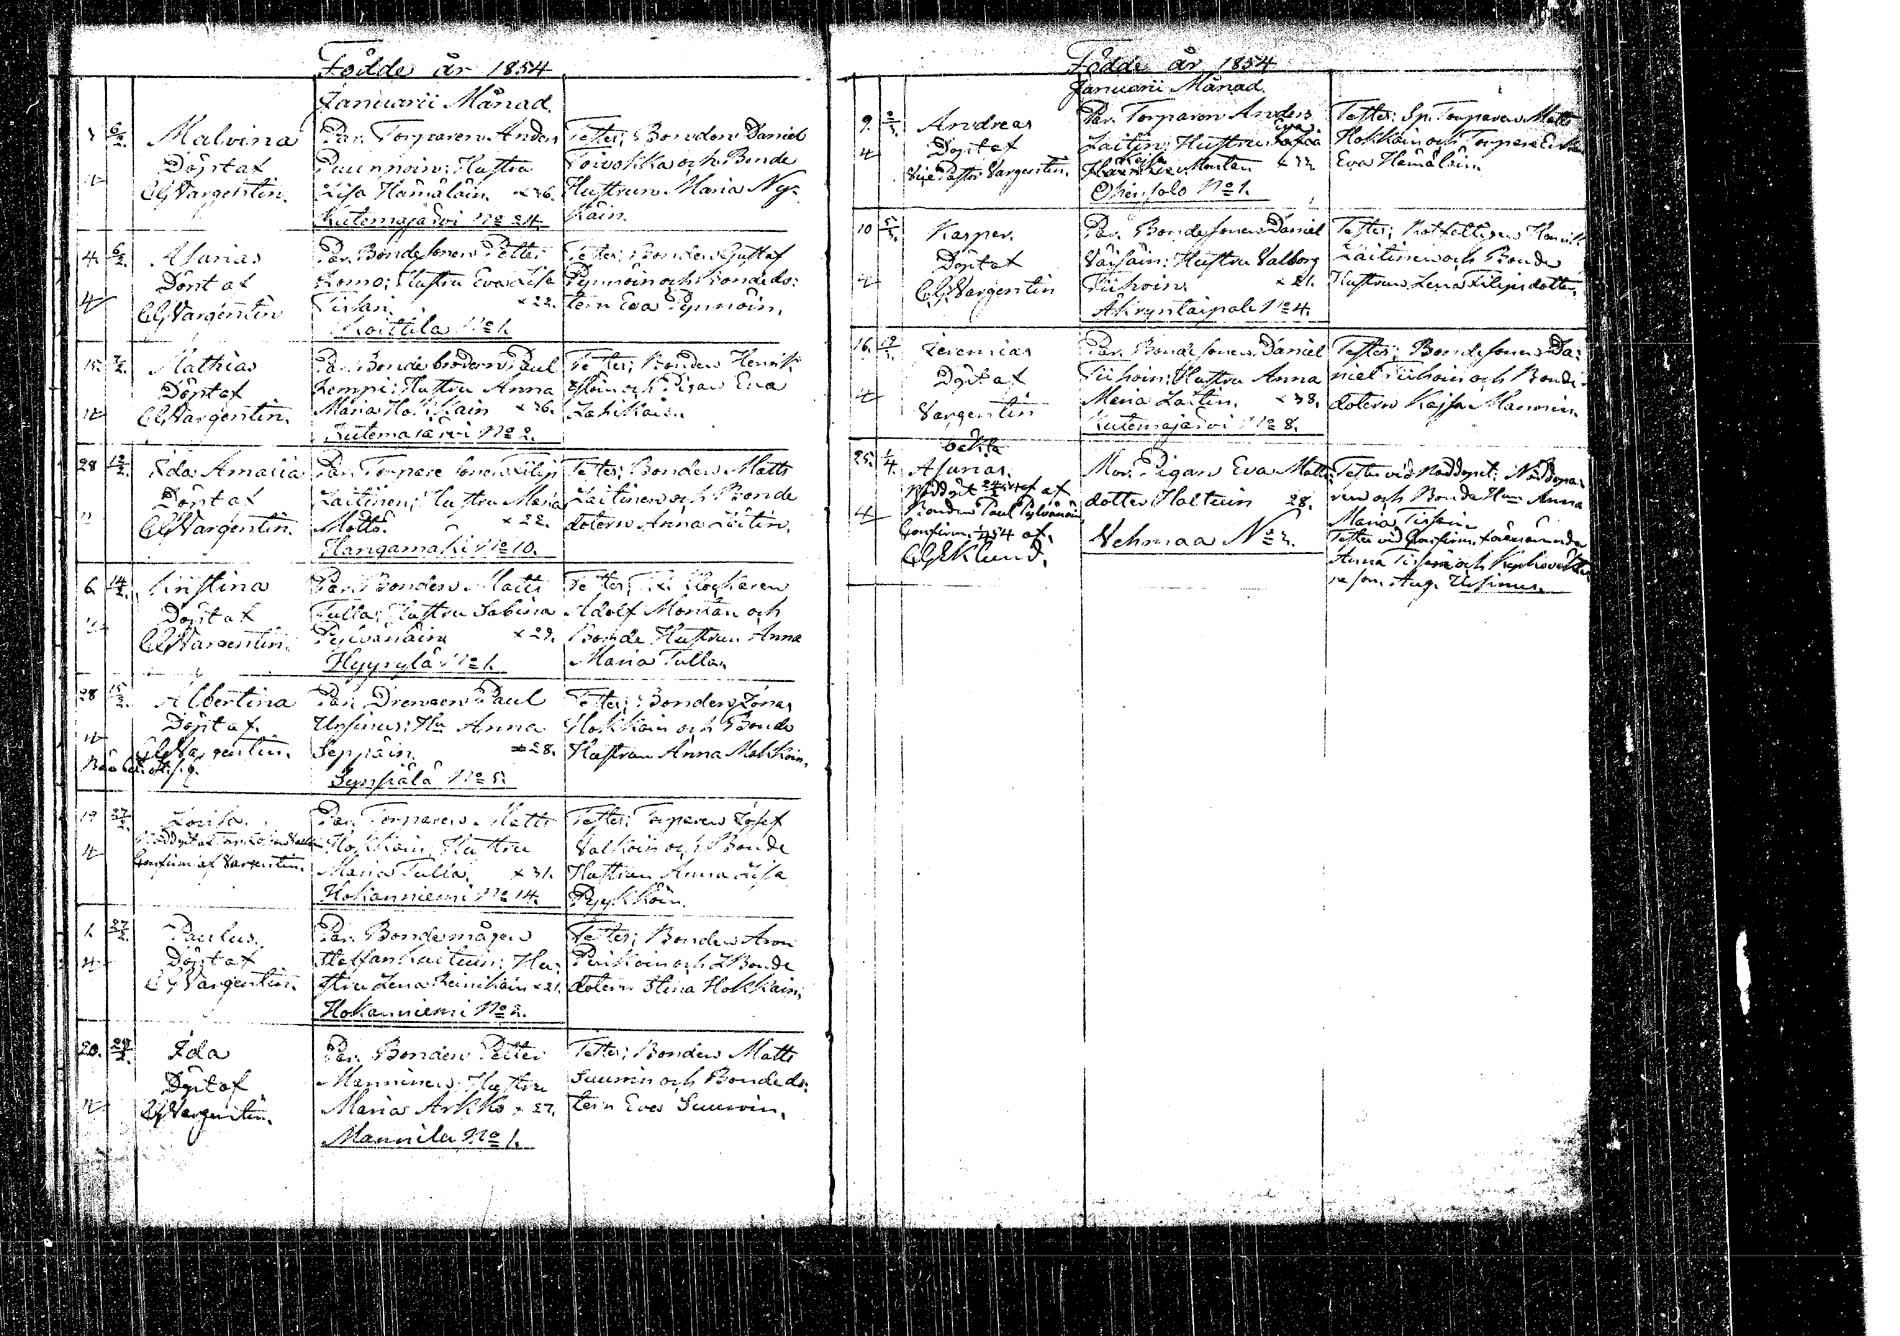 Födde år 1854
Januarii Månad.
6/2. Malvina
Döpt af
CG Vargentin.
Par. Torparen Anders
Puunnoin; Hustru
Lisa Hämäläin. x 36.
Kutemajärvi No 24.
Testes; Bonden Daniel
Toivokka och Bonde
Hustrun Maria Ny-
käin.
4. 6/2. Asarias
Döpt af
CG Vargentin
Par. Bondesonen Petter
Lomo; Hustru Eva Lisa
x 22.
No 1.
Testes; Bonden Gustaf
Pynnöin och Bondedo:
tern Eva Pynnöin.
15. 7/2. Mathias
Döpt af
CG Vargentin.
Par. Bondebrodern Paul
Kemppi; Hustru Anna
Maria Hokkain x 36.
Kutemajärvi No 2.
Testes; Bonden Henrik
och Pigan Eva
28 12/2. Ida Amalia
Döpt af
CG Vargentin.
Par. Torpare sonen Filip
Laitinen; Hustru Maria
Mattö. x 22.
Kangamäki No 10.
Testes; Bonden Matts
Laitinen och Bonde
dotern Anna Laitin.
6. 14/2. Cristina
Döpt af
CG Vargentin.
Par. Bonden Matts
Tulla; Hustru Sabina
Pylvänäin x 29.
Hyyrylä No 1.
Testes; Klockaren
Adolf Montan och
Bonde Hustrun Anna
Maria Tulla.
28 15/2. Albertina
Döpt af
CG Vargentin.
Par. Drengen Paul
Ursinus; Hu Anna
Seppäin. x 28.
Synsiälä No 5.
Testes; Bonden Jonas
Hokkain och Bonde
Hustrun Anna Hokkain.
19 27/2. Lovisa.
Confirm af Vargentin.
Par. Torparen Matts
Hokkain; Hustru
Maria Tulla. x 31.
Hokanniemi No 14.
Testes; Torparen Josef
Valkoin och Bonde
Hustrun Anna Lisa
Pyykköin.
1. 27/2. Paulus.
Döpt af
CG Vargentin.
Par. Bondemågen
Staffan Laitinen; Hu-
stru Lena Reinikain x 21.
Hokanniemi No 2.
Testes; Bonden Aron
Puikoin och Bonde
dotern Stina Hokkain.
20. 28/2. Ida
Döpt af
CG Vargentin.
Par. Bonden Petter
Manninen; Hustru
Maria Arkko x 27.
Mannila No 1.
Testes; Bonden Matts
Suurnin och Bondedo:
tern Eva Suurnin.
Födde år 1854
Januarii Månad.
9. 2/3. Andreas
Döpt af
Vice Pastor Vargentin.
Par. Torparen Anders
Laitin; Hustru
Kaisa Montan x 32
Ohensalo No 1.
Testes; Sp. Torparen Matts
Hokkain och Torpare
Eva Hämäläin.
10 5/3. Kasper.
Döpt af
CG Vargentin
Par. Bondesonen Daniel
Väisäin; Hustru Valborg
Tiihoin. x 21.
Akryntaipale No 4.
Testes; Rotfattigen Henrik
Laitinen och Bonde
Hustrun Lena Filipsdotter.
16. 12/3. Jeremias
Döpt af
Vargentin
Par. Bondesonen Daniel
Tiihoin; Hustru Anna
Maria Laitin. x 38.
Kutemajärvi No 8.
Testes; Bondesonen Da:
niel Tiihoin och Bonde
dotern Kajsa Mannin.
25. 1/4. oäkta
Asarias.
Nöddöpt 24/3 af
Bonden Paul Pylvänäin
Confirm. 1/4 54 af.
CG Eklund.
Mor. Pigan Eva Matts:
dotter Holtuin 28.
Vehmaa No 2.
Testes vid Nöddopet: Nöddöpa-
ren och Bonde Hun Anna
Maria Tissein
Testes vid Confirm. förenämnda
Anna Tissein och
Aug. Ursinus.